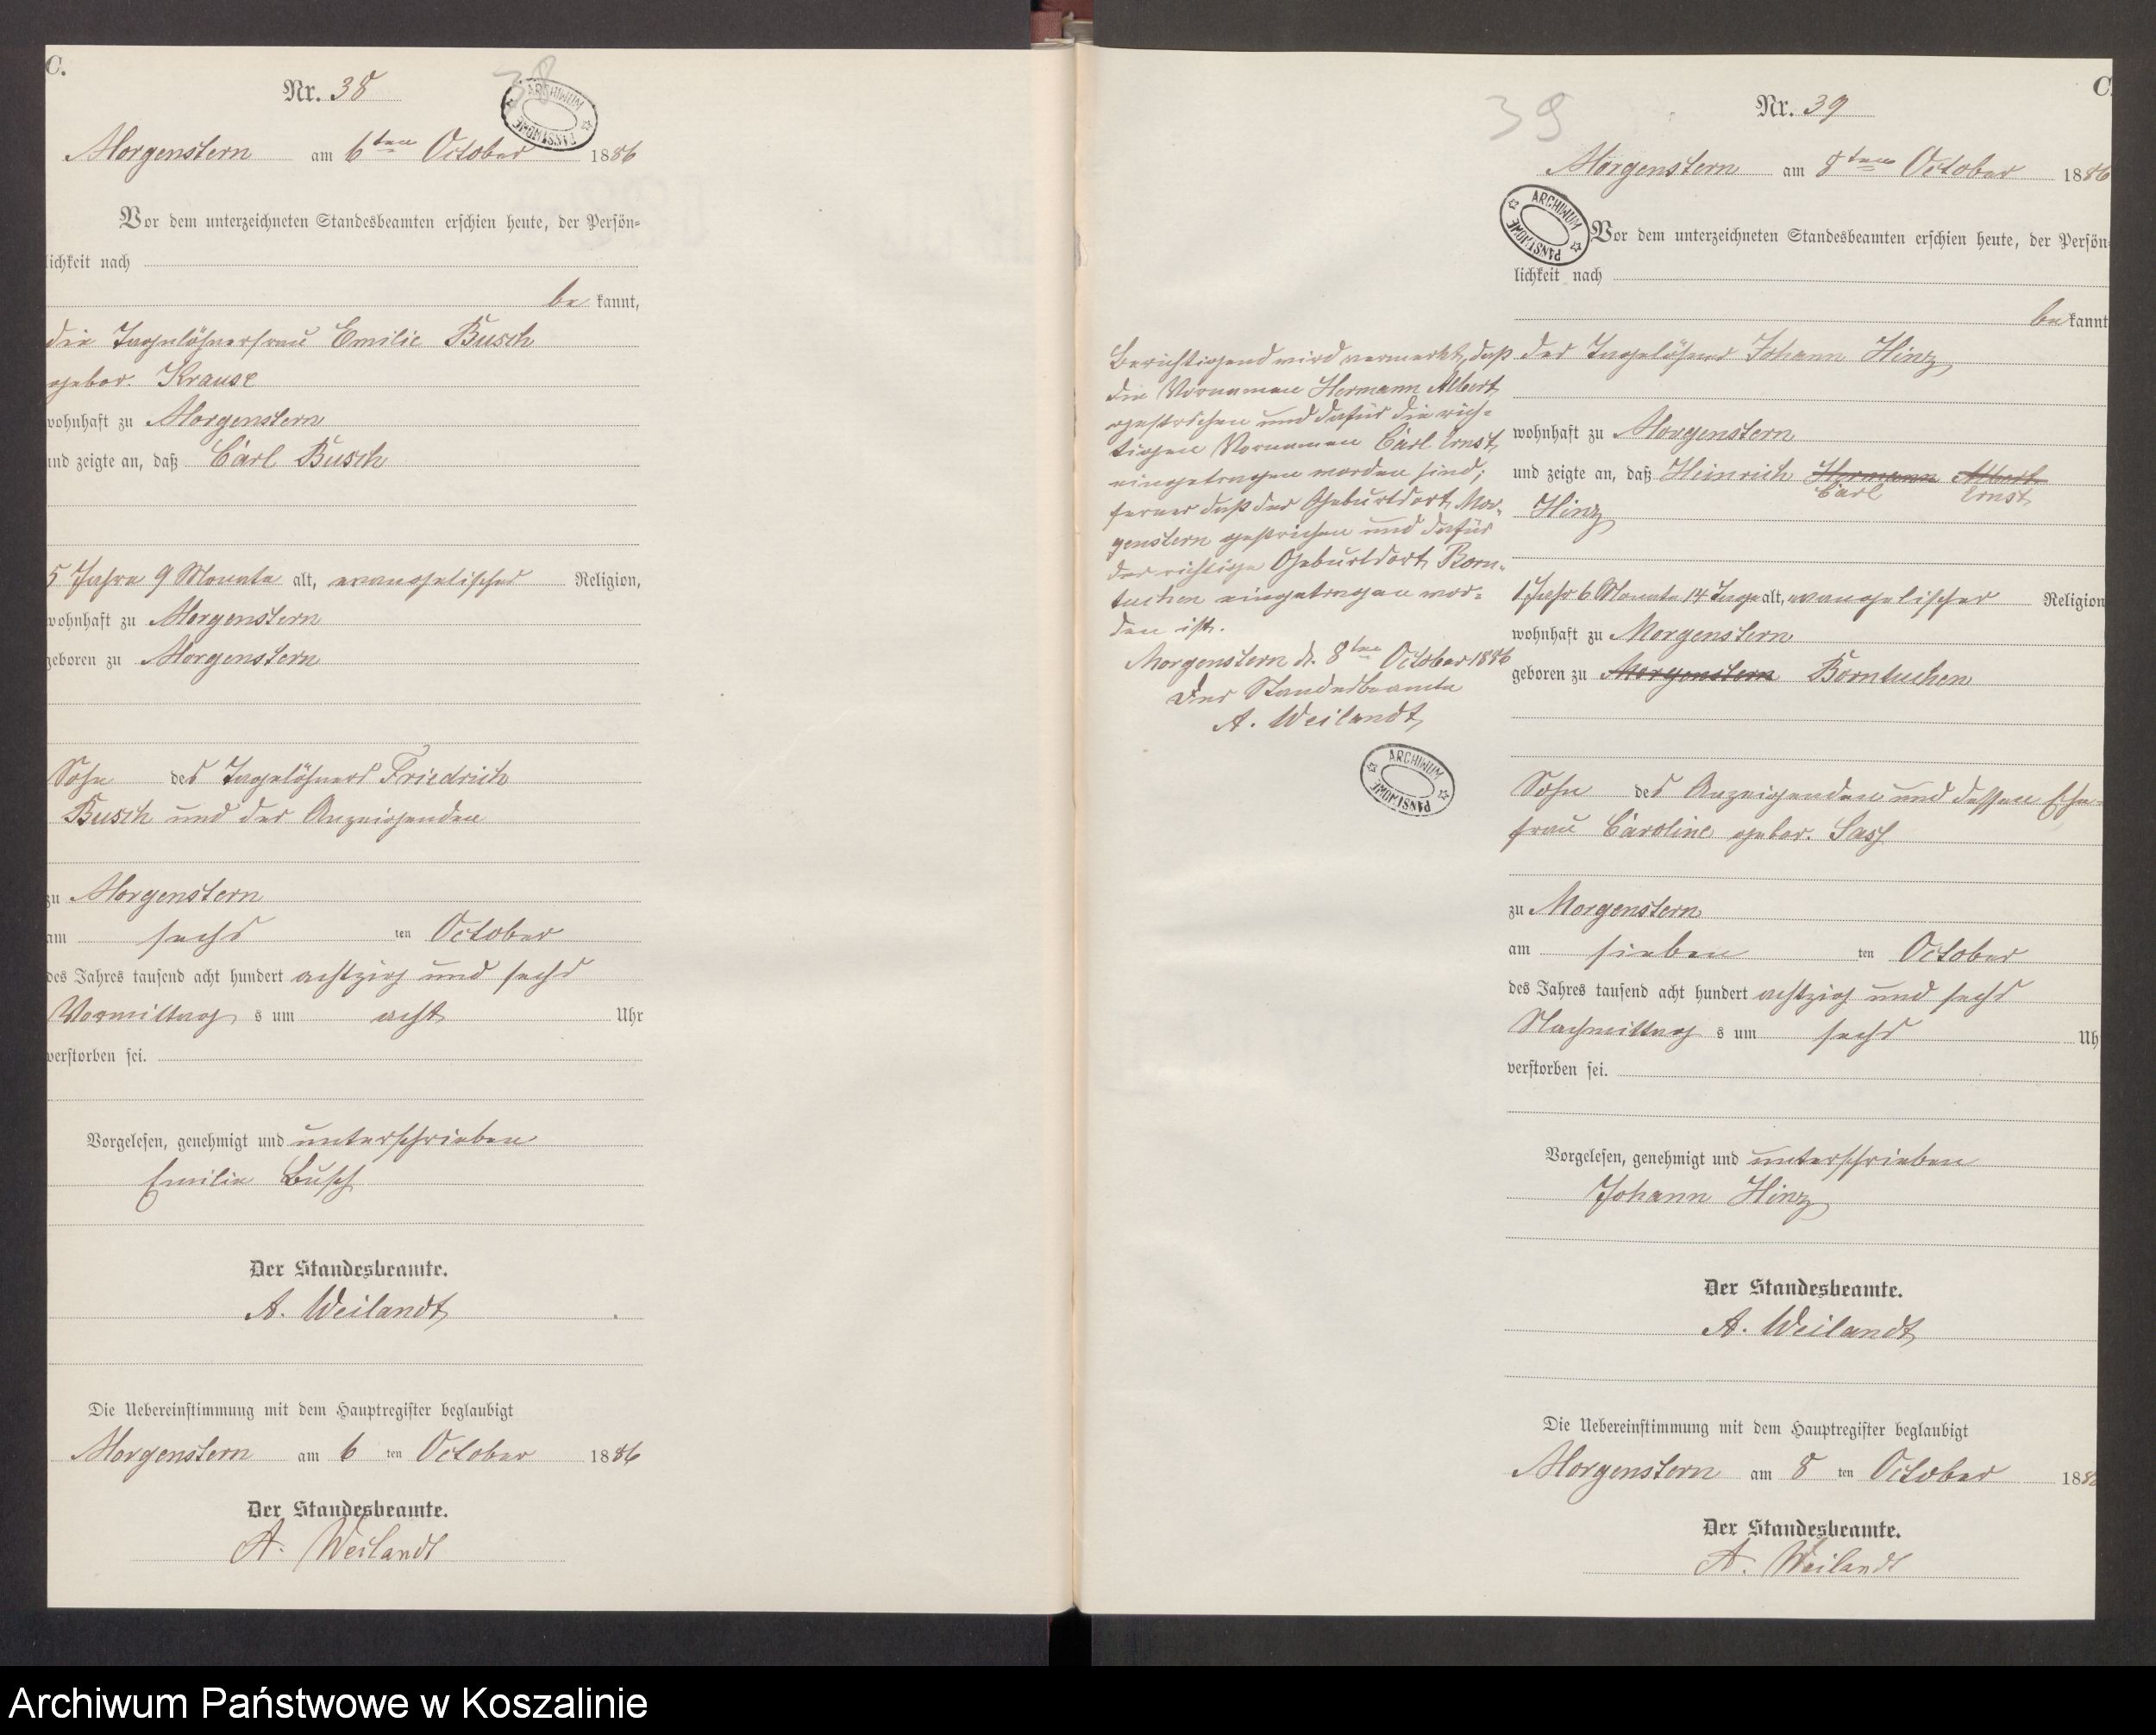 C.
Nr. 38
38
ARCHIWUM PAŃSTWOWE
Morgenstern am 6ten October 1886
Vor dem unterzeichneten Standesbeamten erschien heute, der Persön-
lichkeit nach
be kannt,
die Tagelöhnerfrau Emilie Busch
gebor. Krause
wohnhaft zu Morgenstern
und zeigte an, daß Carl Busch
5 Jahre 9 Monate alt, evangelischer Religion,
wohnhaft zu Morgenstern
geboren zu Morgenstern
Sohn des Tagelöhners Friedrich
Busch und der Anzeigenden
zu Morgenstern
am sechs ten October
des Jahres tausend acht hundert achtzig und sechs
Vormittag s um acht Uhr
verstorben sei.
Vorgelesen, genehmigt und unterschrieben
Emilie Busch
Der Standesbeamte.
A. Weilandt
Die Uebereinstimmung mit dem Hauptregister beglaubigt
Morgenstern am 6 ten October 1886
Der Standesbeamte.
A. Weilandt
C.
Nr. 39
39
Morgenstern am 8ten October 1886
ARCHIWUM PAŃSTWOWE
Vor dem unterzeichneten Standesbeamten erschien heute, der Persön-
lichkeit nach
be kannt
der Tagelöhner Johann Hinz
wohnhaft zu Morgenstern
und zeigte an, daß Heinrich Hermann Albert
Carl Ernst
Hinz
1 Jahr 6 Monate 14 Tage alt, evangelischer Religion
wohnhaft zu Morgenstern
geboren zu Morgenstern Borntuchen
Sohn des Anzeigenden und dessen Ehe-
frau Caroline gebor. Sass
zu Morgenstern
am sieben ten October
des Jahres tausend acht hundert achtzig und sechs
Nachmittag s um sechs Uh
verstorben sei.
Vorgelesen, genehmigt und unterschrieben
Johann Hinz
Der Standesbeamte.
A. Weilandt
Die Uebereinstimmung mit dem Hauptregister beglaubigt
Morgenstern am 8 ten October 188
Der Standesbeamte.
A. Weilandt
Berichtigend wird vermerkt, daß
die Vornamen Hermann Albert
gestrichen und dafür die rich-
tigen Vornamen Carl Ernst
eingetragen worden sind;
ferner daß der Geburtsort Mor-
genstern gestrichen und dafür
der richtige Geburtsort Born-
tuchen eingetragen wor-
den ist.
Morgenstern d. 8ten October 1886
Der Standesbeamte
A. Weilandt
ARCHIWUM PAŃSTWOWE
Archiwum Państwowe w Koszalinie